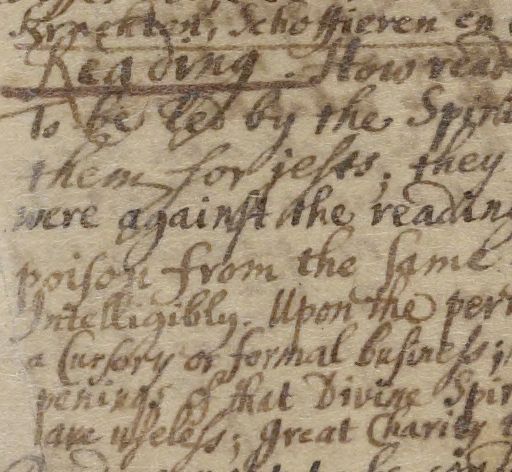 Krachten, Schoffieren en
Reading. How read
to be led by the Spirit
them for jests, they
were against the reading
poison from the same
Intelligibly. Upon the per
a Cursory or formal business;
penings of that Divine Spir
are useless; great Charity